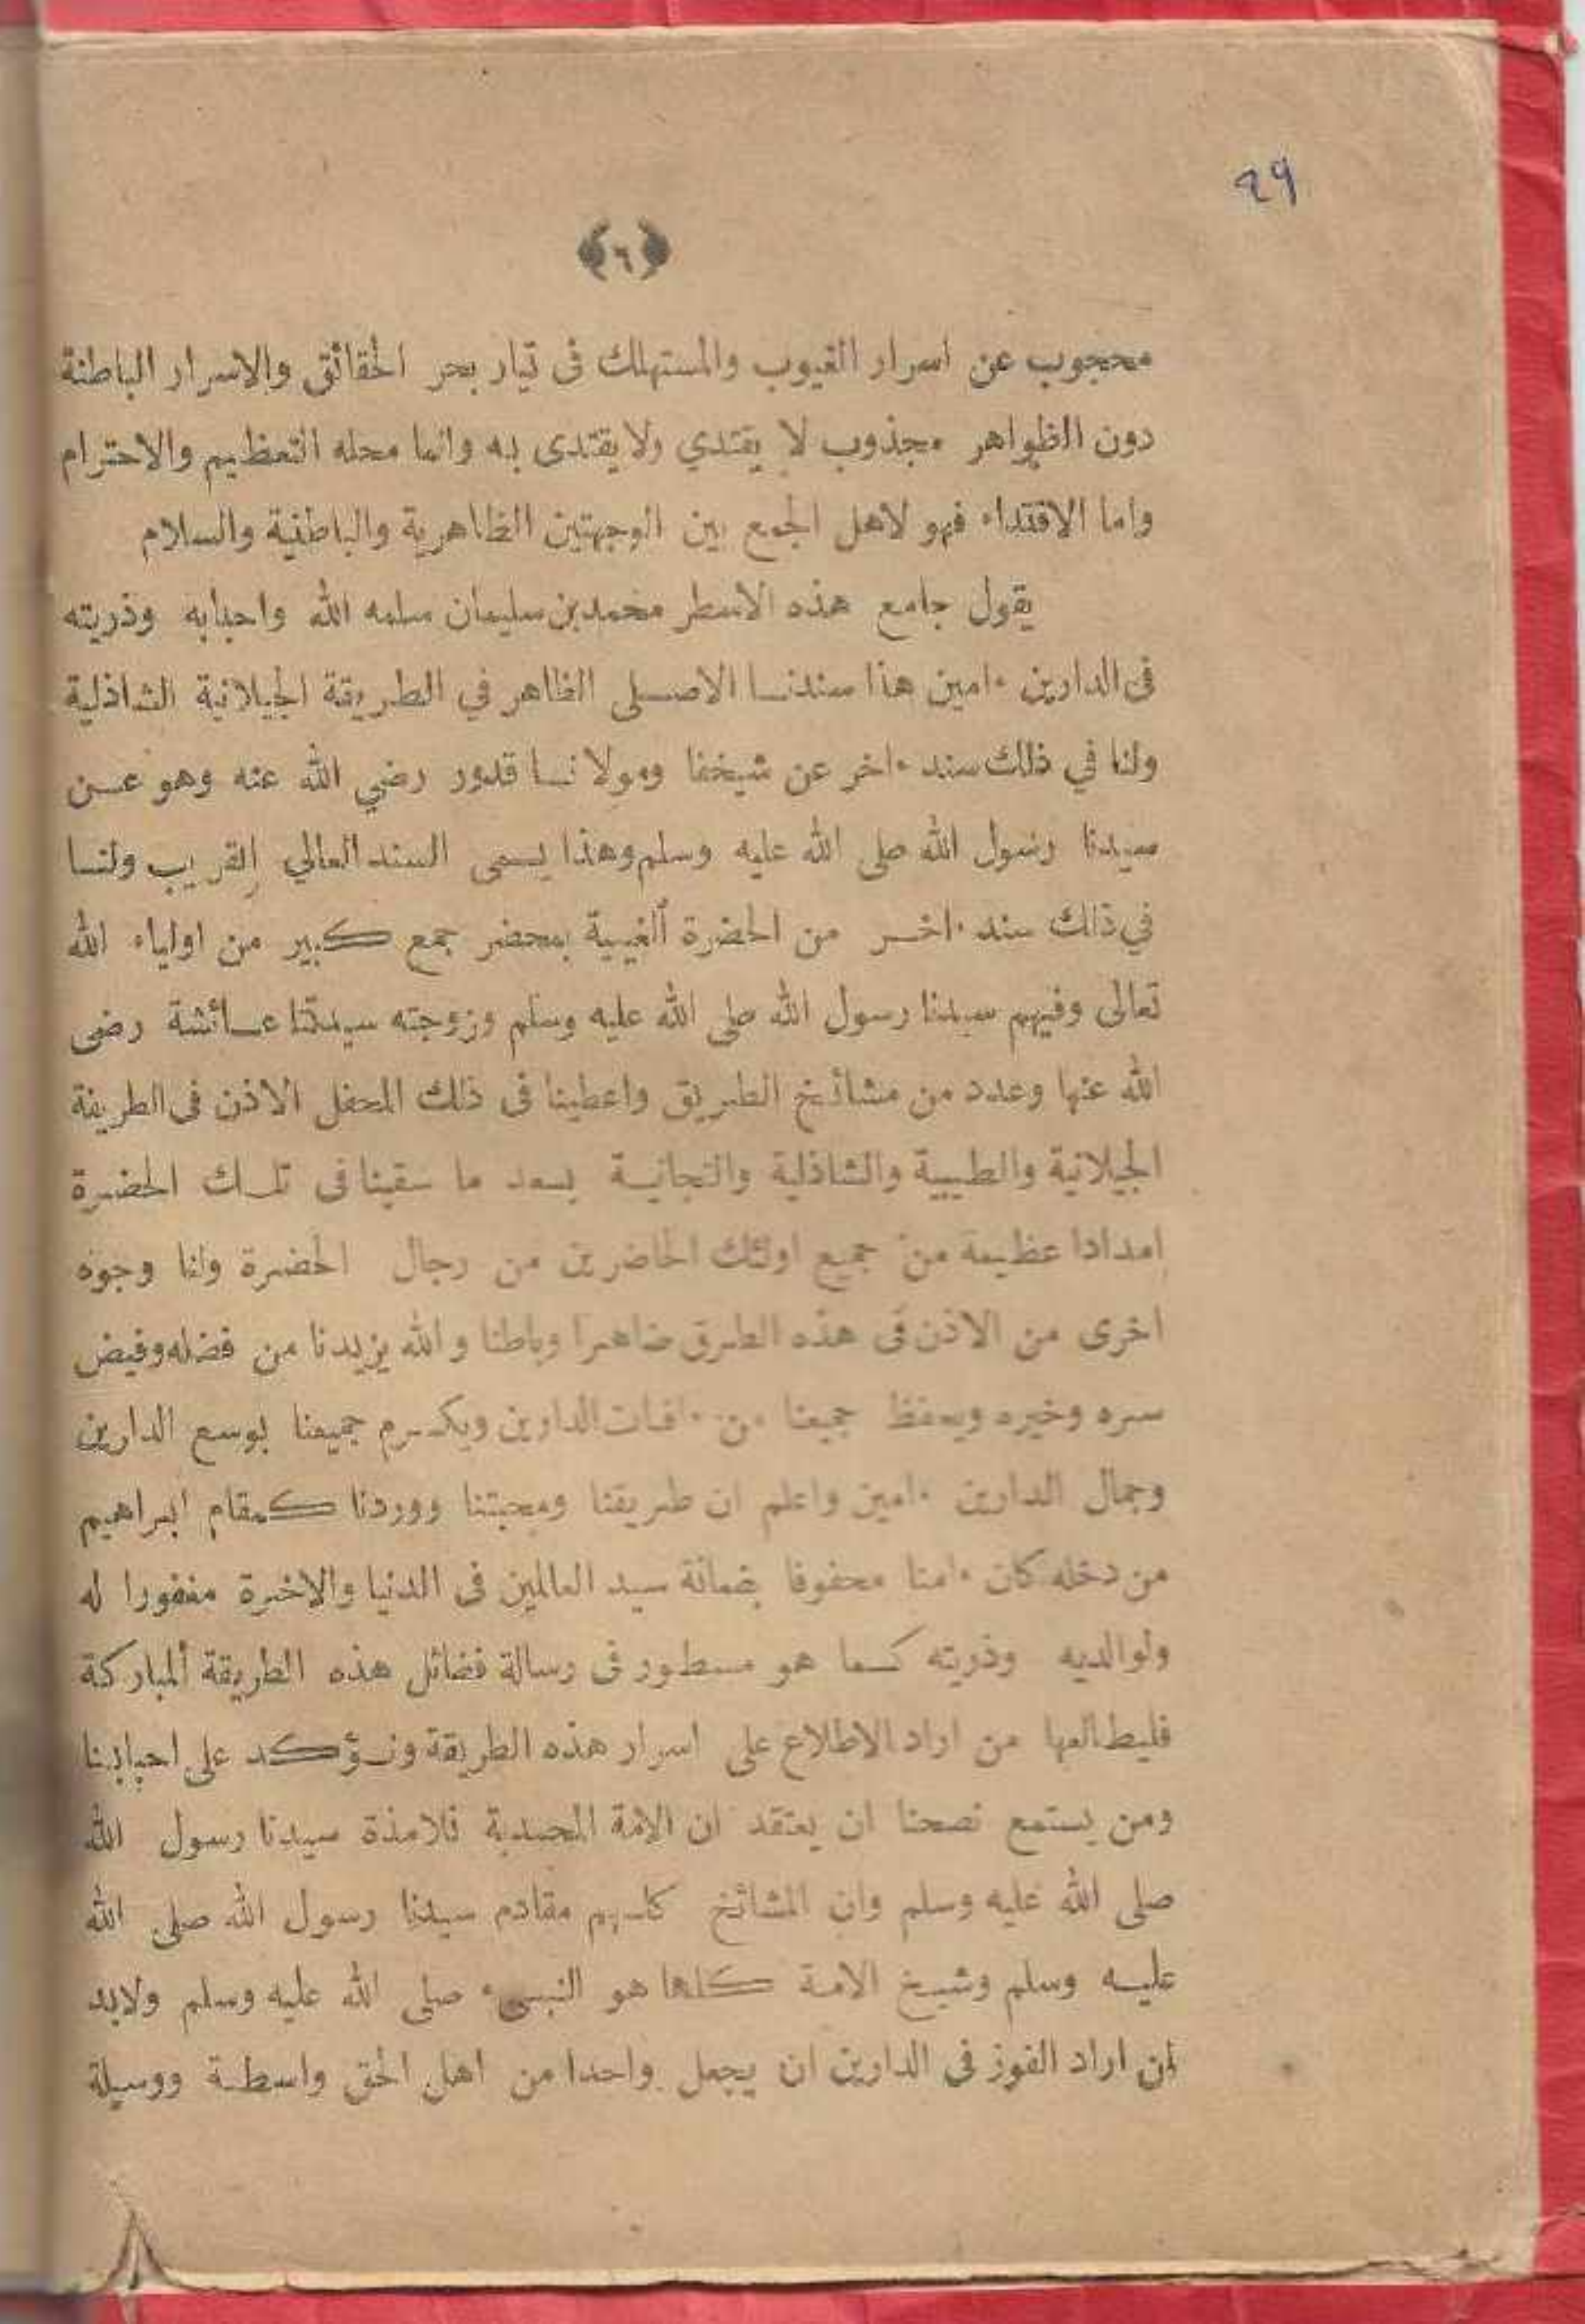 29
﴿٦﴾
محجوب عن اسرار الغيوب والمستهلك فى تيار بحر الحقائق والاسرار الباطنة
دون الظواهر مجذوب لا يقتدي ولا يقتدى به وانما محله التعظيم والاحترام
واما الاقتداء فهو لاهل الجمع بين الوجهتين الظاهرية والباطنية والسلام
يقول جامع هذه الاسطر محمد بن سليمان سلمه الله واحبابه وذريته
فى الدارين ءامين هذا سندنا الاصلى الظاهر في الطريقة الجيلانية الشاذلية
ولنا في ذلك سند ءاخر عن شيخنا ومولانا قدور رضي الله عنه وهو عن
سيدنا رسول الله صلى الله عليه وسلم وهذا يسمى السند العالي القريب ولنا
في ذلك سند ءاخر من الحضرة الغيبية بمحضر جمع كبير من اولياء الله
تعالى وفيهم سيدنا رسول الله صلى الله عليه وسلم وزوجته سيدتنا عائشة رضى
الله عنها وعدد من مشائخ الطريق واعطينا فى ذلك المحفل الاذن فى الطريقة
الجيلانية والطيبية والشاذلية والتجانية بعد ما سقينا فى تلك الحضرة
امدادا عظيمة من جميع اولئك الحاضرين من رجال الحضرة ولنا وجوه
اخرى من الاذن فى هذه الطرق ضاهرا وباطنا والله يزيدنا من فضله وفيض
سره وخيره ويحفظ جميعنا من ءافات الدارين ويكرم جميعنا بوسع الدارين
وجمال الدارين ءامين واعلم ان طريقنا ومحبتنا ووردنا كمقام ابراهيم
من دخله كان ءامنا محفوفا بضمانة سيد العالمين فى الدنيا والاخرة مغفورا له
ولوالديه وذريته كما هو مسطور فى رسالة فضائل هذه الطريقة المباركة
فليطالعها من اراد الاطلاع على اسرار هذه الطريقة ونؤكد على احبابنا
ومن يستمع نصحنا ان يعتقد ان الامة المحمدية تلامذة سيدنا رسول الله
صلى الله عليه وسلم وان المشائخ كلهم مقادم سيدنا رسول الله صلى الله
عليه وسلم وشيخ الامة كلها هو النبىء صلى الله عليه وسلم ولابد
لمن اراد الفوز فى الدارين ان يجعل واحدا من اهل الحق واسطة ووسيلة